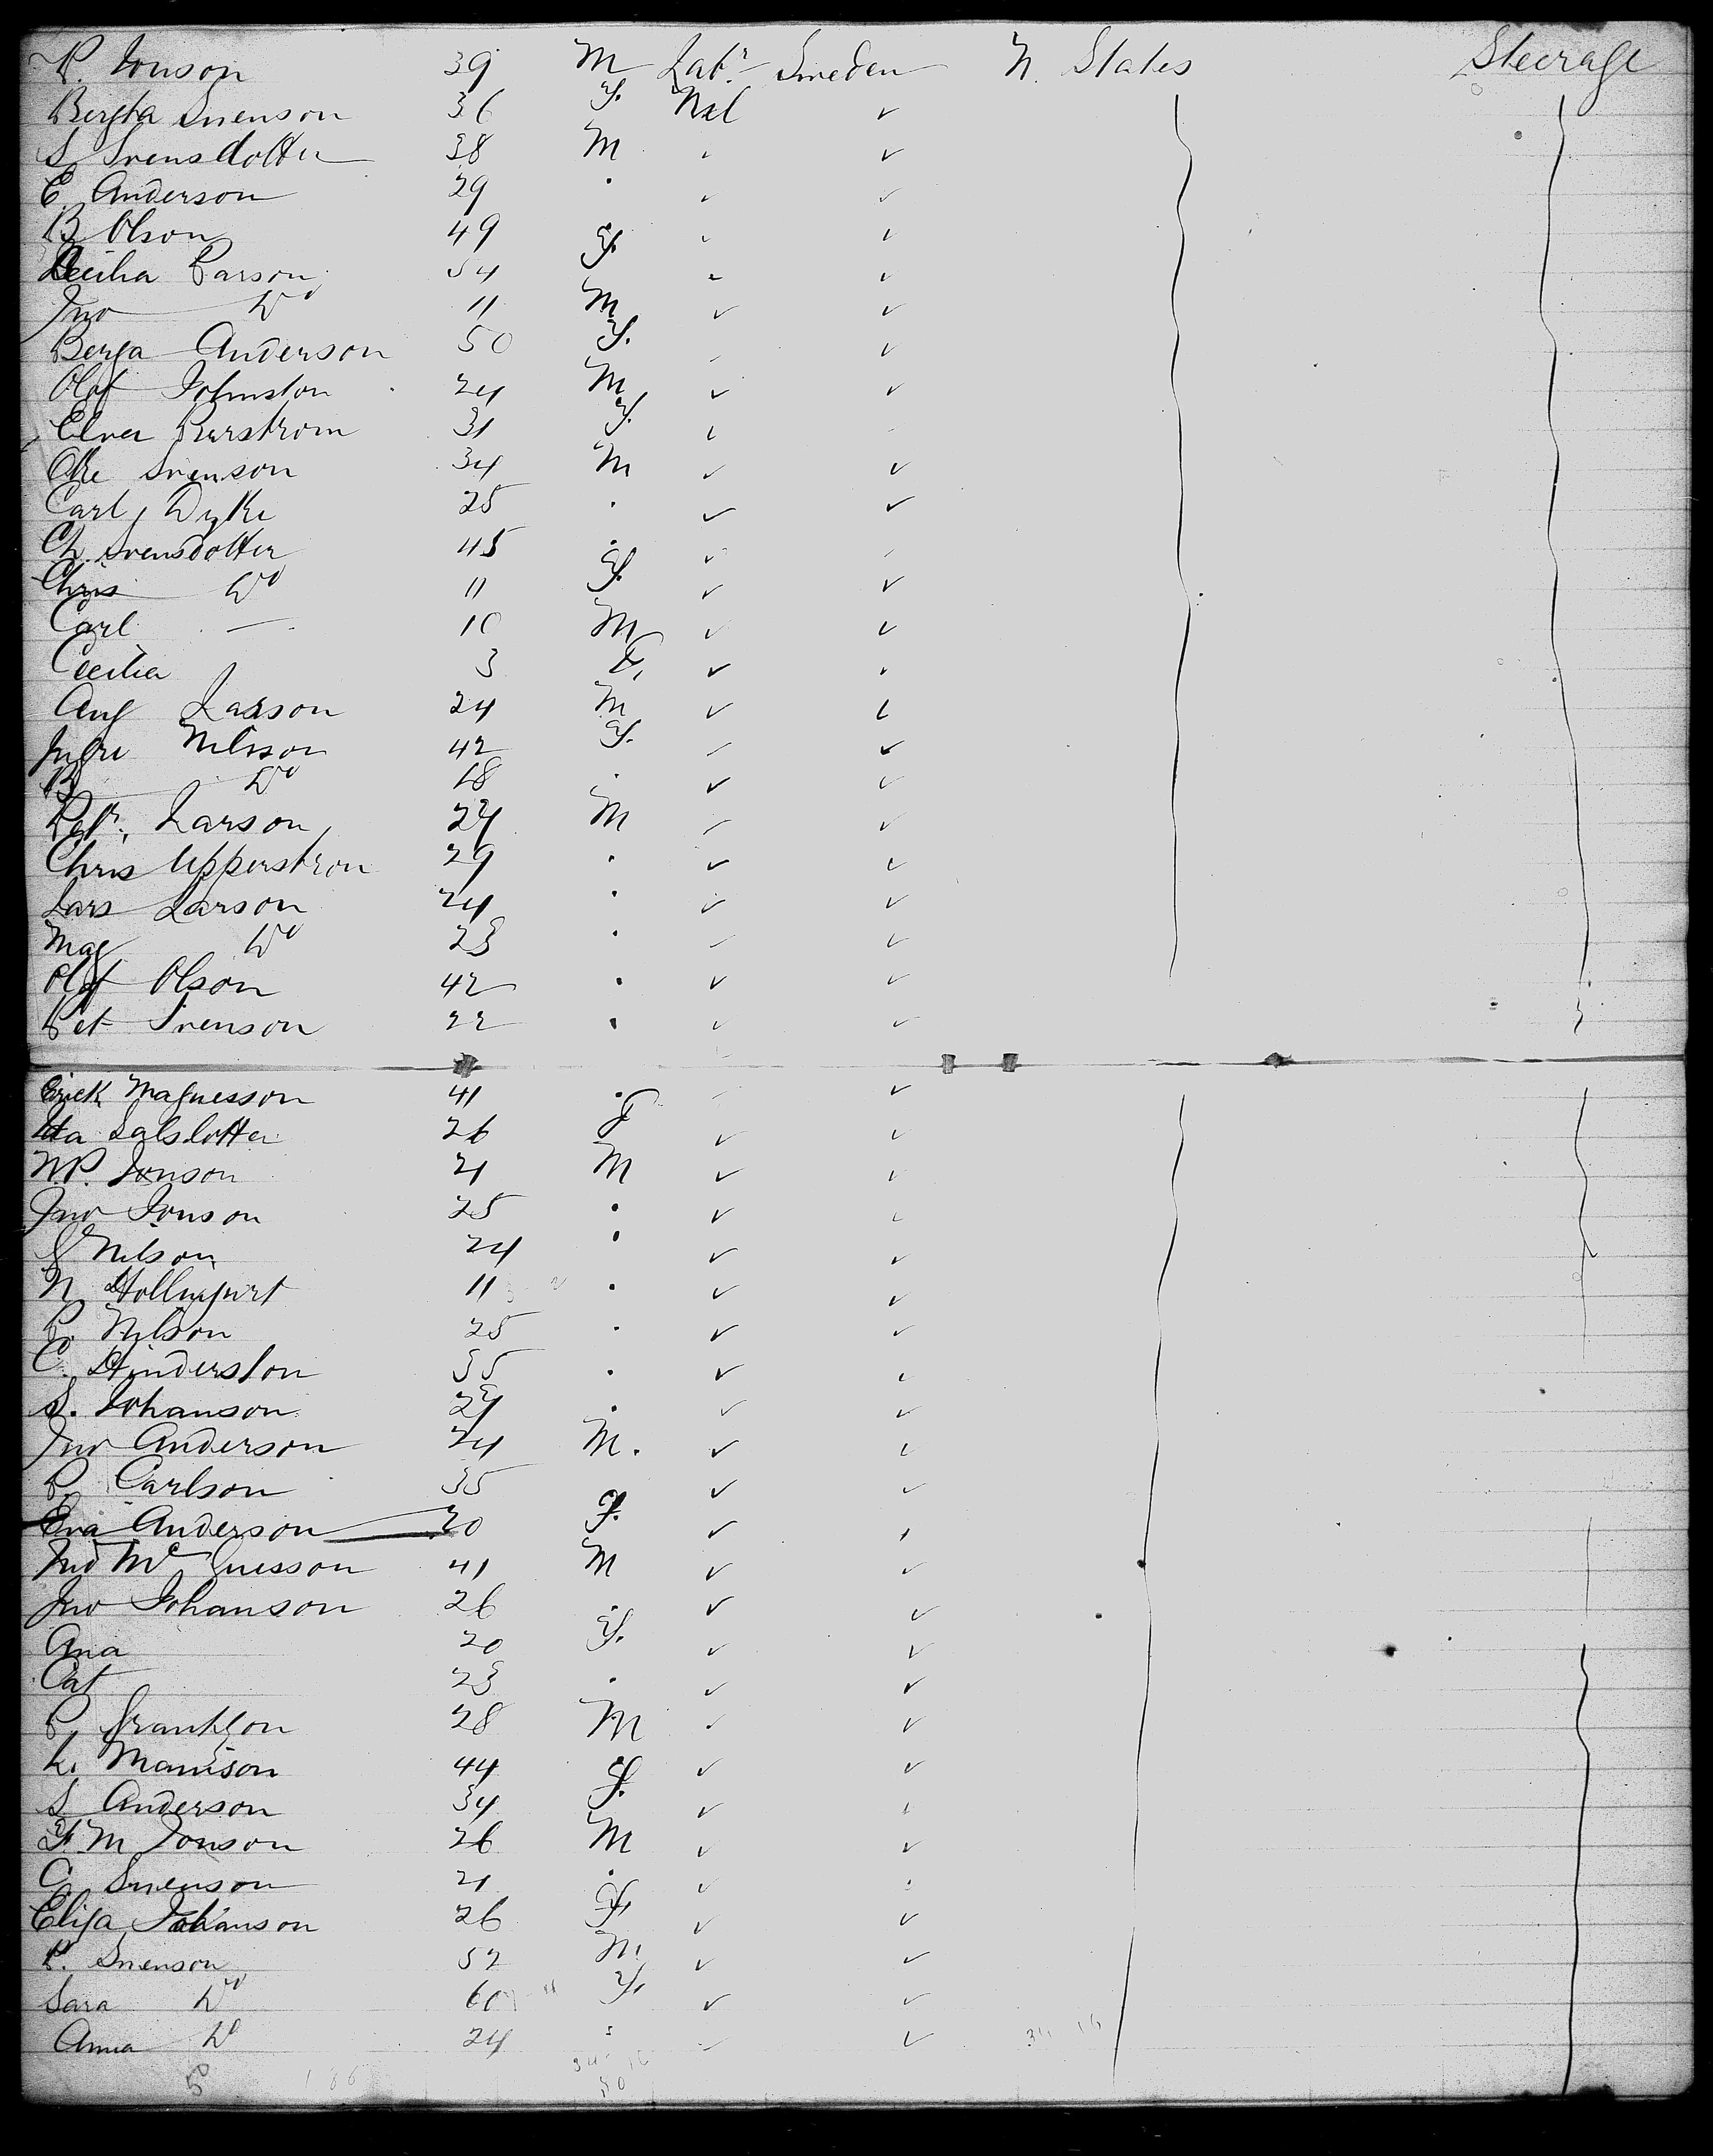 P. Jonson 39 M Labr Sweden U. States Steerage
Bengta Svenson 36 F. Nxl ✓
S Svensdotter 38 M ✓
C. Anderson 29 ✓ ✓
B Olson 49 F. ✓
Cecilia Parson 54 ✓
Jno Do 11 M ✓ ✓
Berga Anderson 50 F. ✓
Olof Johnston 24 M ✓ ✓
Elna 31 F. ✓
Ole Svenson 34 M ✓ ✓
Carl Dyke 25 ✓ ✓
Ch. Svensdotter 45 ✓
Chris Do 11 F. ✓ ✓
Carl — 10 M ✓ ✓
Cecilia 3 F. ✓
Aug Larson 24 M ✓ ✓
Ingri Nilsson 42 F. ✓ ✓
B Do 18 ✓ ✓
Petr. Larson 24 M ✓ ✓
Chris Upperstrom 29 ✓ ✓
Lars Larson 24 ✓ ✓
Mag Do 23 ✓ ✓
Olof Olson 42 ✓ ✓
Pet Svenson 22 ✓ ✓
Erick Magnesson 41 ✓
26 F ✓ ✓
N.P. Jonson 21 M ✓ ✓
Jno Jonson 25 ✓ ✓
Nilson 24 ✓ ✓
N 11 ✓ ✓
P. Nilson 25 ✓ ✓
C. Hinderston 35 ✓ ✓
S. Johanson 24 ✓ ✓
Jno Anderson 24 M. ✓ ✓
P. Carlson 35 ✓ ✓
Eva Anderson 20 F. ✓
Jno Mc Guesson 41 M ✓ ✓
Jno Johanson 26 ✓ ✓
Ana 20 F. ✓ ✓
Cat 23 ✓ ✓
P. Frankson 28 M ✓ ✓
L. Manison 44 F. ✓ ✓
S Anderson 34 ✓
F. M Jonson 26 M ✓ ✓
C. Svenson 21 ✓
Elisa Johanson 26 F. ✓ ✓
P. Svenson 52 M. ✓ ✓
Sara Do 60 F. ✓ ✓
Anna Do 24 ✓ ✓
50